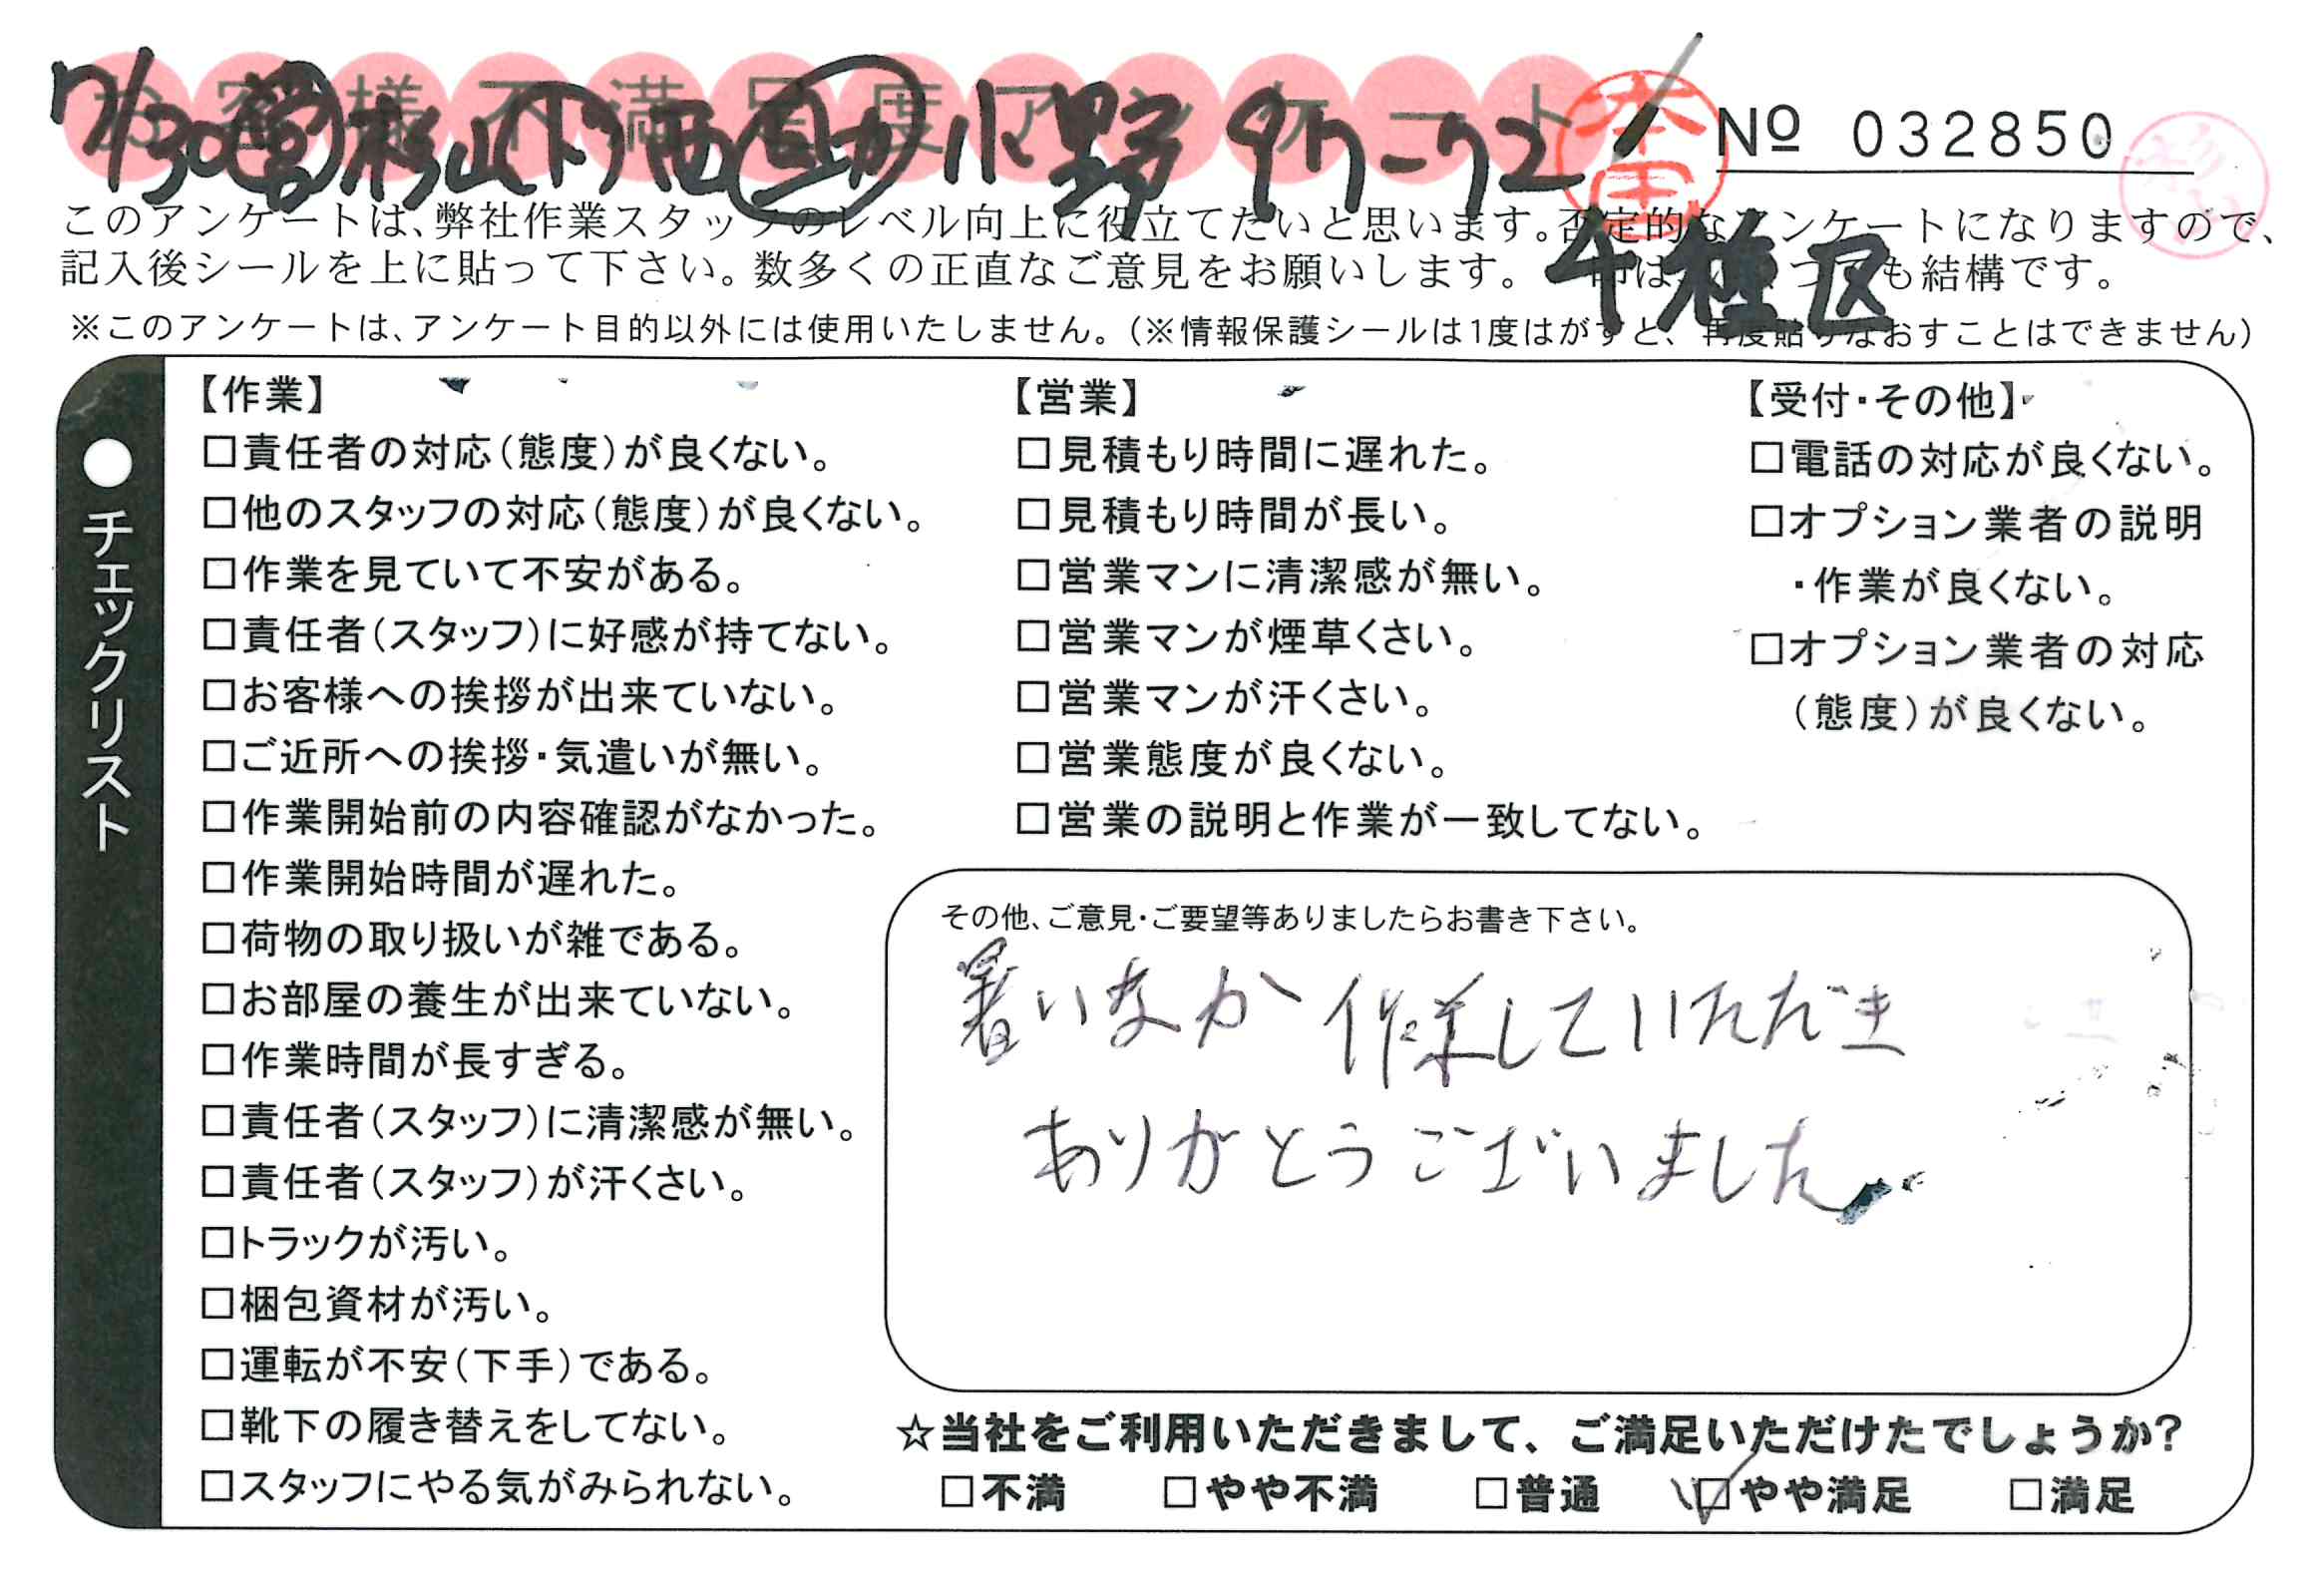 お客様不満足度アンケート
7/30 営 杉山 下 西 助 小野 97-72
本田
No 032850
千種区
このアンケートは、弊社作業スタッフのレベル向上に役立てたいと思います。否定的なアンケートになりますので、
記入後シールを上に貼って下さい。数多くの正直なご意見をお願いします。 も結構です。
※このアンケートは、アンケート目的以外には使用いたしません。(※情報保護シールは1度はがすと、再度貼りなおすことはできません)
●チェックリスト
【作業】
□責任者の対応(態度)が良くない。
□他のスタッフの対応(態度)が良くない。
□作業を見ていて不安がある。
□責任者(スタッフ)に好感が持てない。
□お客様への挨拶が出来ていない。
□ご近所への挨拶・気遣いが無い。
□作業開始前の内容確認がなかった。
□作業開始時間が遅れた。
□荷物の取り扱いが雑である。
□お部屋の養生が出来ていない。
□作業時間が長すぎる。
□責任者(スタッフ)に清潔感が無い。
□責任者(スタッフ)が汗くさい。
□トラックが汚い。
□梱包資材が汚い。
□運転が不安(下手)である。
□靴下の履き替えをしてない。
□スタッフにやる気がみられない。
【営業】
□見積もり時間に遅れた。
□見積もり時間が長い。
□営業マンに清潔感が無い。
□営業マンが煙草くさい。
□営業マンが汗くさい。
□営業態度が良くない。
□営業の説明と作業が一致してない。
【受付・その他】
□電話の対応が良くない。
□オプション業者の説明
・作業が良くない。
□オプション業者の対応
(態度)が良くない。
その他、ご意見・ご要望等ありましたらお書き下さい。
暑いなか 作業していただき
ありがとうございました
☆当社をご利用いただきまして、ご満足いただけたでしょうか?
□不満 □やや不満 □普通 ☑やや満足 □満足